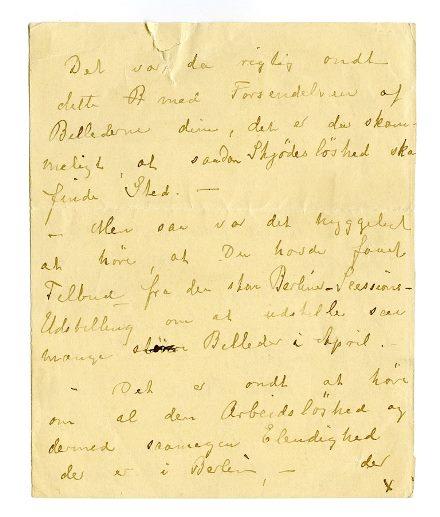 Det var da rigtig ondt
dette med Forsendelsen af
Billederne dine, det er da skam-
meligt at saadan Skjødesløshed ska
finde Sted. –
– Men saa var det hyggeligt
at høre, at Du havde faaet
Tilbud fra den store Berlin-Secessions-
Udstilling om at udstille saa
mange Billeder i April. –
– Det er ondt at høre
om al den Arbeidsløshed og
dermed saamegen Elendighed
der er i Berlin, – der
x